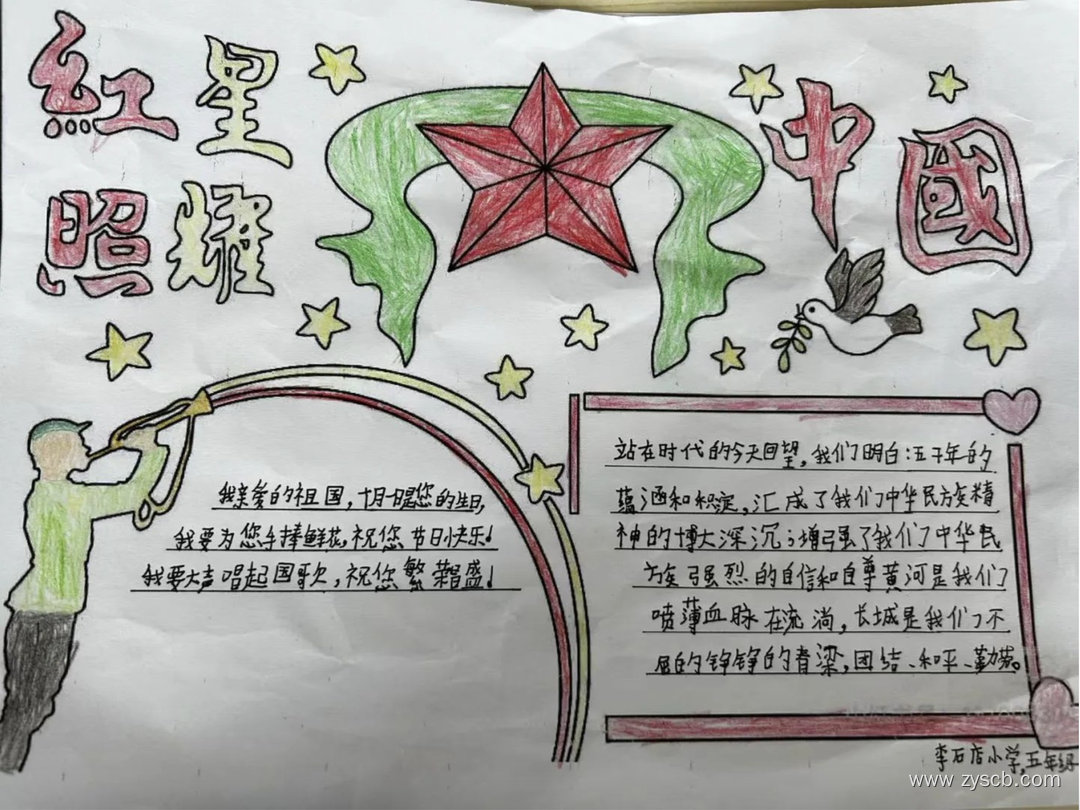 紅星
照耀
中國
我亲爱的祖国,十月一日是您的生日,
我要为您手捧鲜花,祝您节日快乐!
我要大声唱起国歌,祝您繁荣昌盛!
站在时代的今天回望,我们明白:五千年的
蕴涵和积淀,汇成了我们中华民族精
神的博大深沉;增强了我们中华民
族强烈的自信和自尊黄河是我们
喷薄血脉在流淌,长城是我们不
屈的铮铮的脊梁,团结、和平、勤劳。
李石店小学,五年级
www.zyscb.com